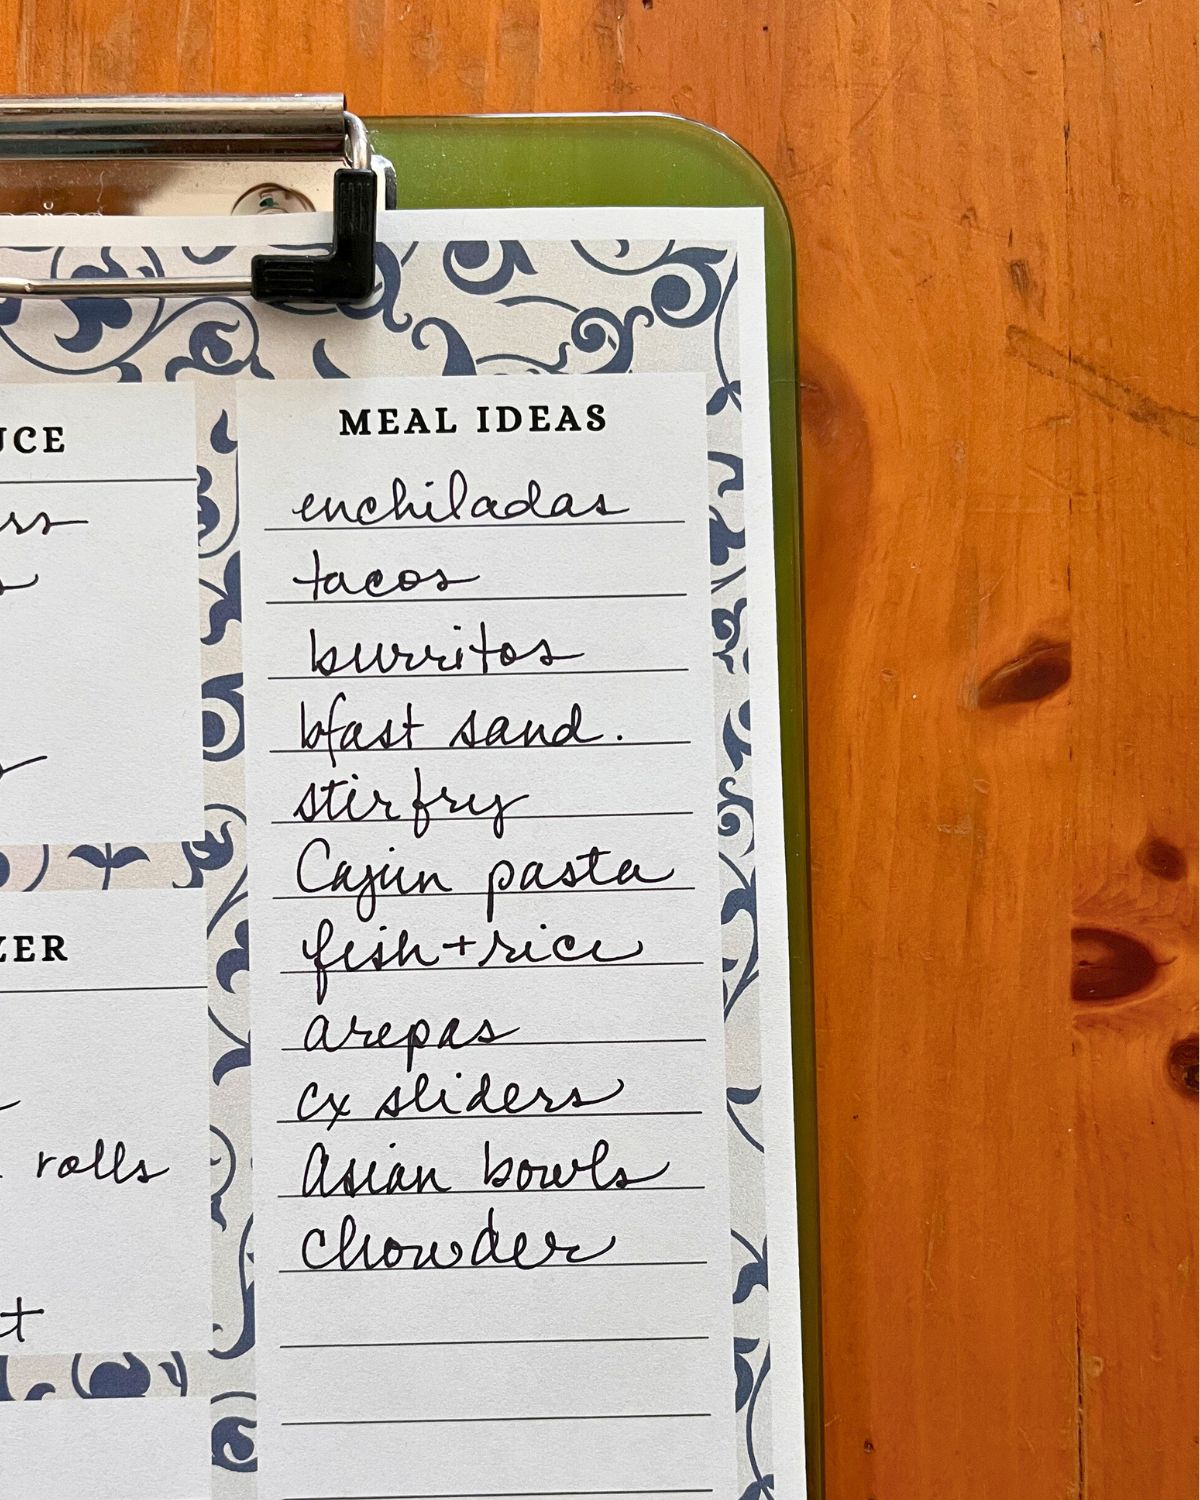 MEAL IDEAS
enchiladas
tacos
burritos
bfast sand.
stirfry
Cajun pasta
fish+rice
arepas
cx sliders
Asian bowls
chowder
UCE
rs
s
s
ZER
rolls
t